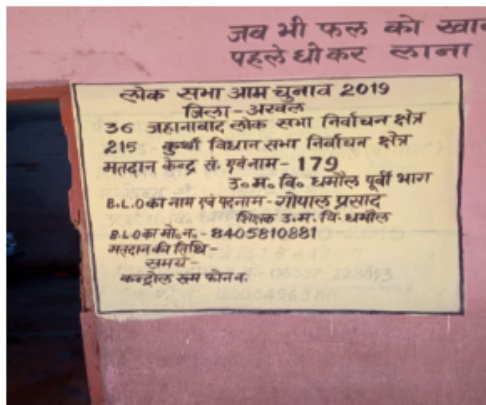 जब भी फल को खान
पहले धोकर लाना
लोक सभा आम चुनाव 2019
जिला-अरवल
36 जहानाबाद लोक सभा निर्वाचन क्षेत्र
215 कुर्था विधान सभा निर्वाचन क्षेत्र
मतदान केन्द्र सं. एवं नाम- 179
उ०म०वि० धमौल पूर्वी भाग
B.L.O का नाम एवं पदनाम-गोपाल प्रसाद
शिक्षक उ.म.वि. धमौल
B.L.O का मो.न.-8405810881
मतदान की तिथि-
समय-
कन्ट्रोल रूम फोन न.